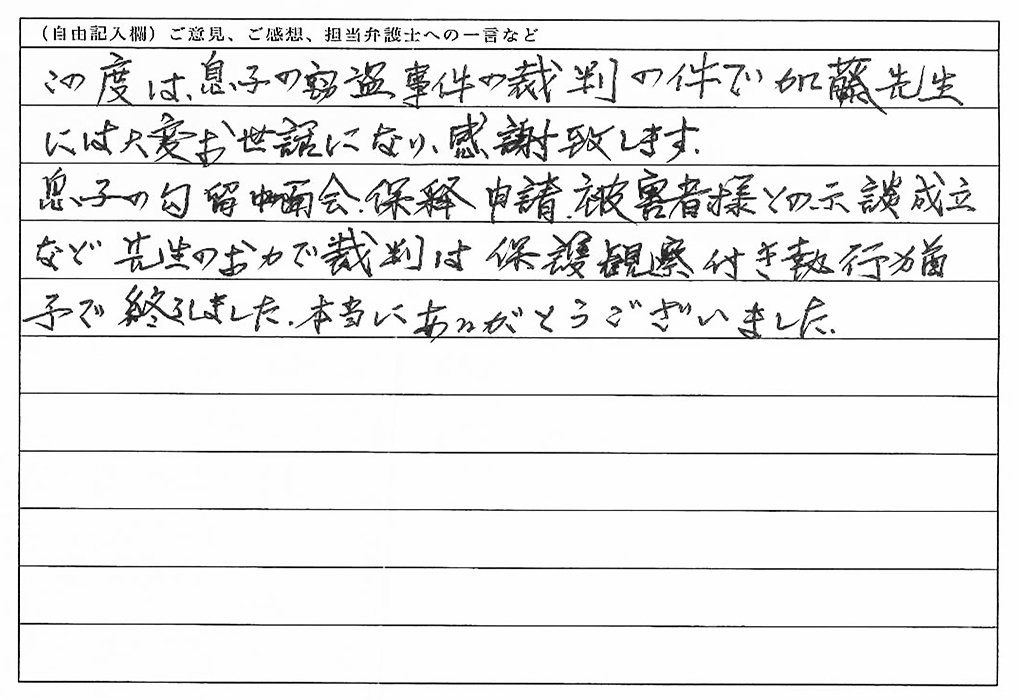 (自由記入欄) ご意見、ご感想、担当弁護士への一言など
この度は、息子の窃盗事件の裁判の件で加藤先生
には大変お世話になり、感謝致します。
息子の勾留中面会、保釈申請、被害者様との示談成立
など先生のお力で裁判は保護観察付き執行猶
予で終了しました。本当にありがとうございました。